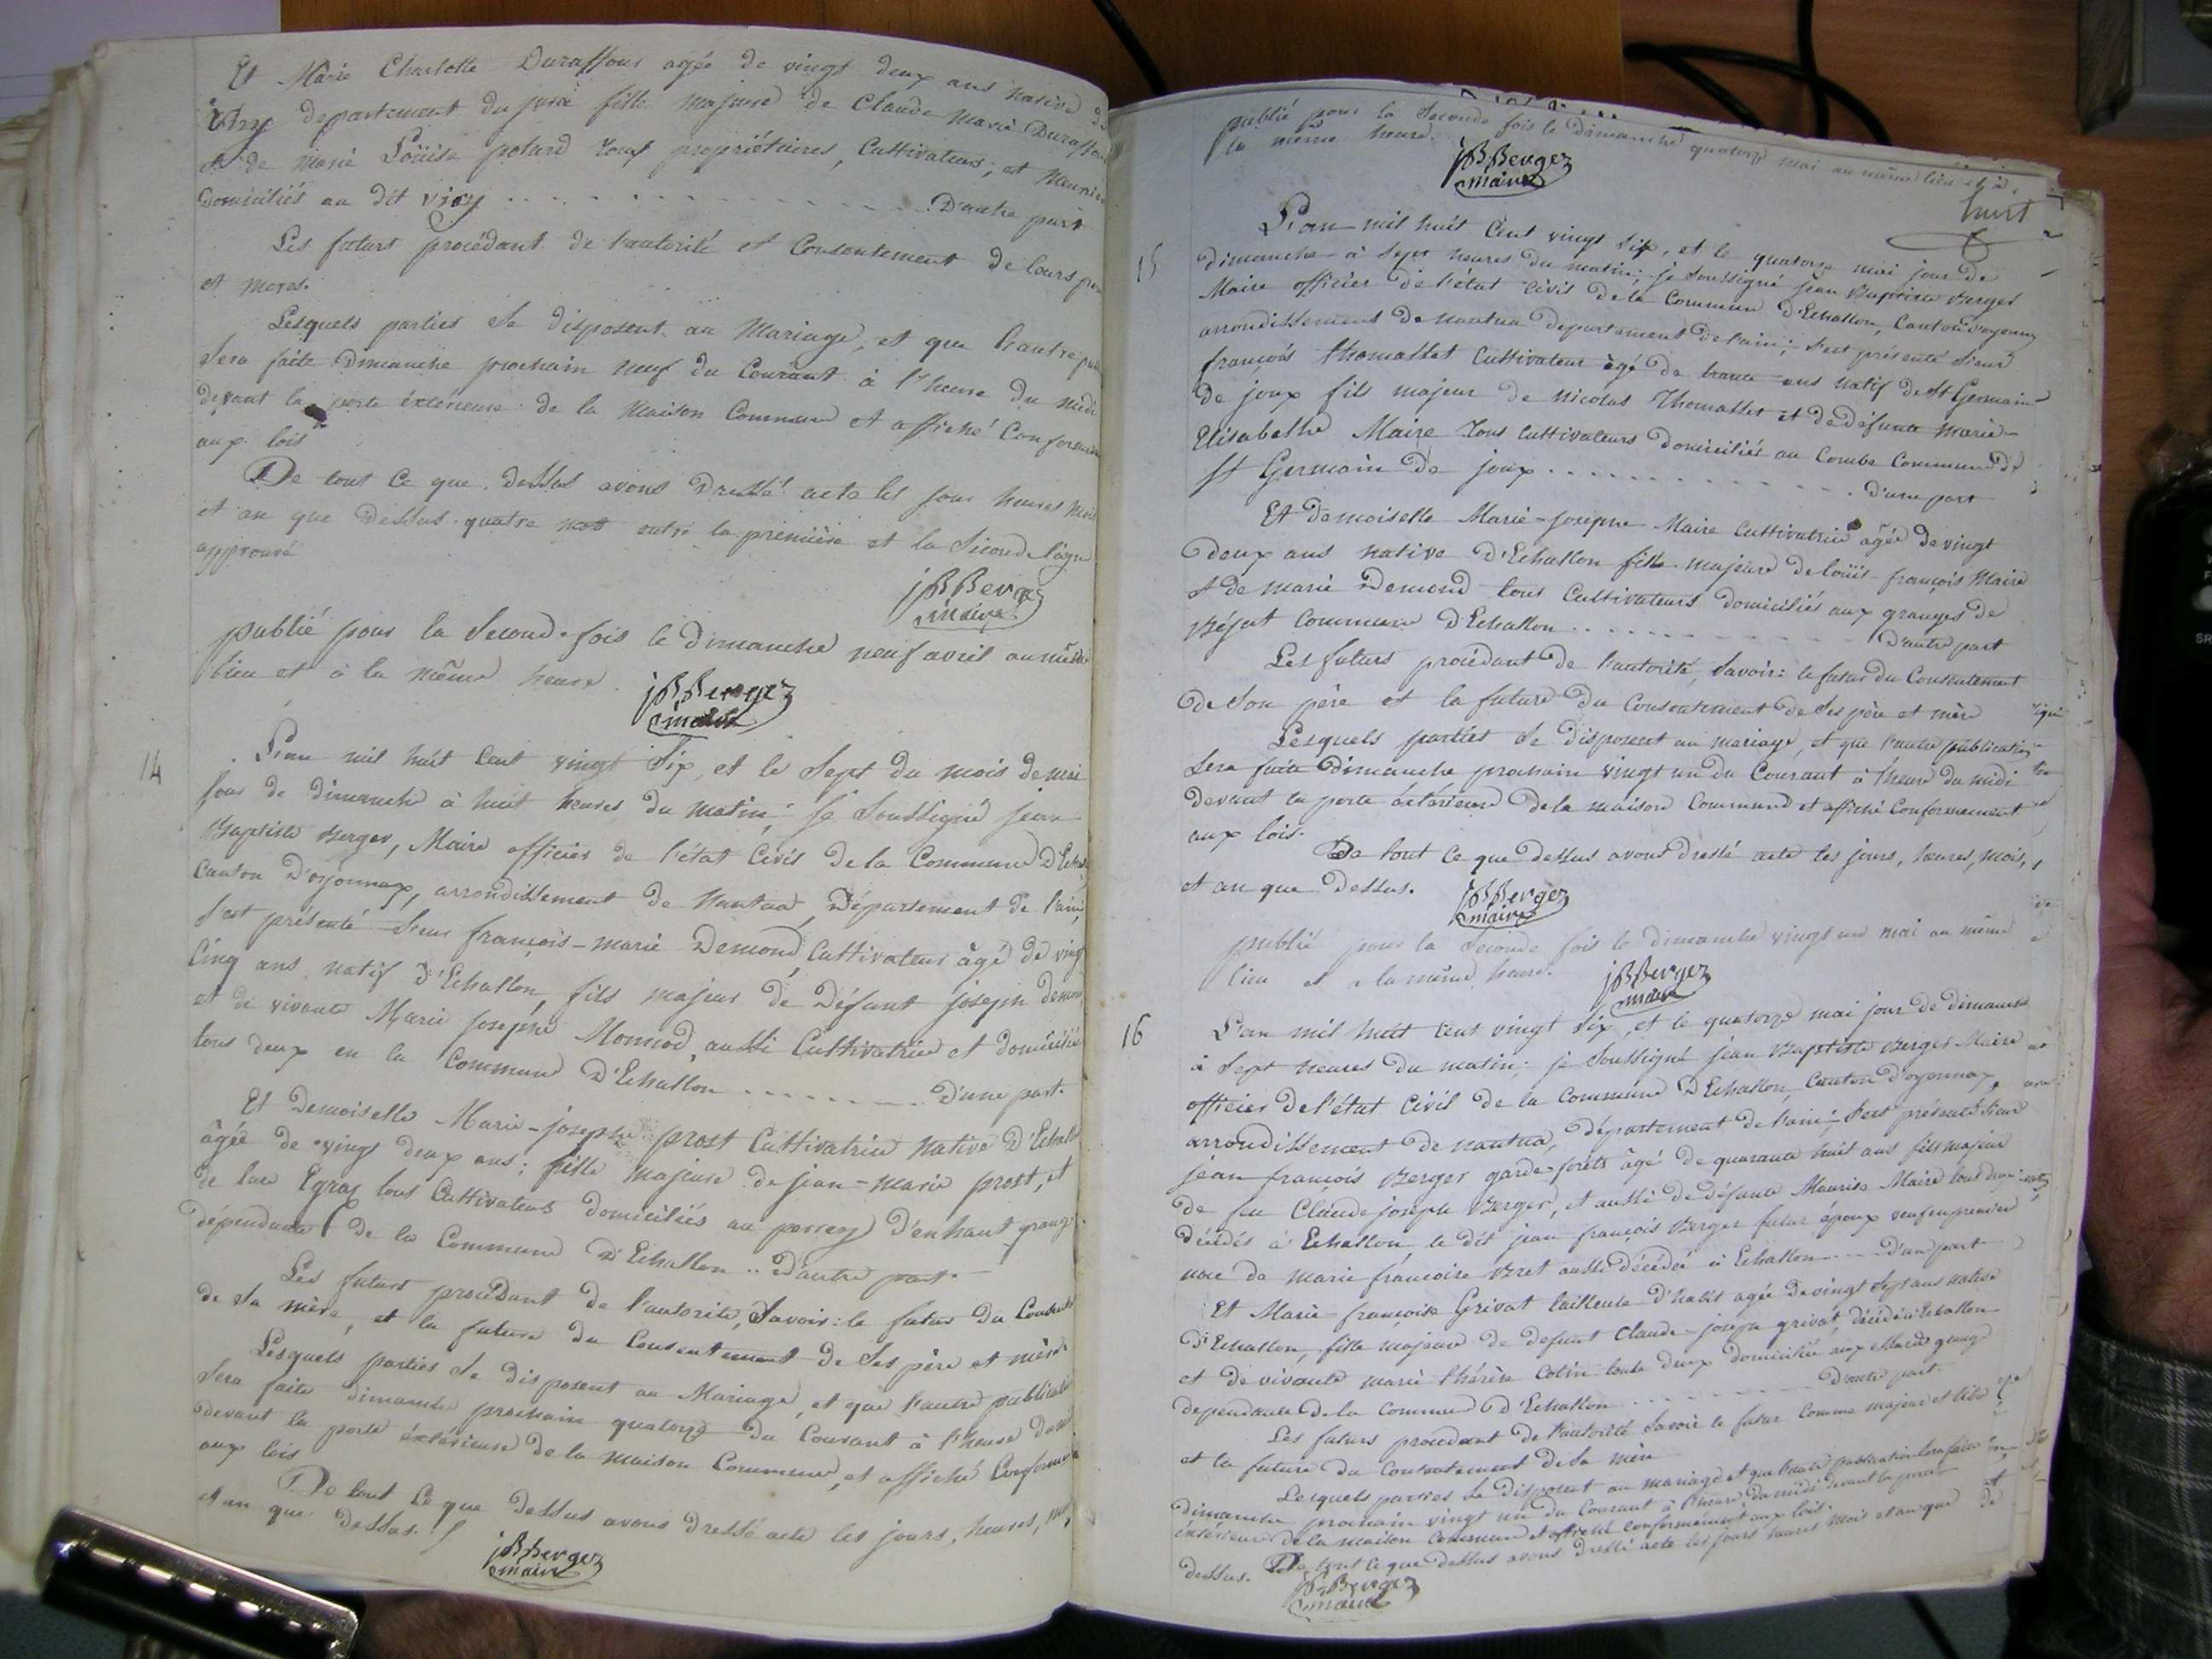 Et Marie Charlotte Duraffour agée de vingt deux ans native de
département du jura fille majeure de Claude Marie Duraffour
et de marie Loüise polard tous propriétaires, Cultivateurs, et Meunier
Domiciliés au dit viry . . . . . . . . . . D'autre part
Les futurs procédant de l'autorité et Consentement de leurs
et meres.
Lesquels parties se disposent au Mariage, et que l'autre
sera faite Dimanche prochain neuf du Courant à l'heure du midi
devant la porte éxtérieure de la Maison Commune et affiché
aux lois
De tout Ce que dessus avons Dressé acte les jour heures mois
et an que Dessus. quatre mots entre la première et la Seconde ligne
approuvé
jBBerger
maire
publié pour la Seconde fois le Dimanche neuf avril au même
lieu et à la même heure.
jBBerger
maire
14
L'an mil huit Cent vingt Six, et le Sept du mois de mai
jour de dimanche à huit heures du matin; je Soussigné jean
Baptiste Berger, Maire officier de l'état Civil de la Commune
Canton D'oyonnax, arrondissement de Nantua, Département de l'ain,
s'est présenté Sieur françois-marie Demond, Cultivateur âgé de vingt
Cinq ans natif D'Echallon, fils majeur de Défunt joseph
et de vivante Marie josephe Monnod, aussi Cultivatrice et domiciliés
tous deux en la Commune D'Echallon . . . . . . . D'une part.
Et Demoiselle Marie-josephe prost Cultivatrice native D'
âgée de vingt deux ans; fille majeure de jean-marie prost, et
de tous Cultivateurs domiciliés au D'enhaut
dépendance de la Commune D'Echallon .. D'autre part.
Les futurs procédant de l'autorité, Savoir: le futur du
de Sa mère, et la future du Consentement de Ses père et mère
Lesquels parties se disposent au Mariage, et que l'autre publication
sera faite dimanche prochain quatorze du Courant à l'heure
devant la porte éxtérieure de la maison Commune, et affiché
aux lois
De tout Ce que Dessus avons Dressé acte les jours, heures,
et an que Dessus.
jBBerger
maire
publié pour la Seconde fois le Dimanche quatorze mai au même lieu et à
la même heure.
jBBerger
maire
huit
15
L'an mil huit Cent vingt Six, et le quatorze mai jour de
dimanche à Sept heures du matin; je Soussigné jean Baptiste Berger
Maire officier de l'état Civil de la Commune D'Echallon, Canton d'oyonnax
arrondissement de nantua département de l'ain; s'est présenté Sieur
françois thomasset Cultivateur âgé de trente ans natif de St Germain
de joux fils majeur de nicolas Thomasset et de défunte marie-
Elisabethe Maire tous Cultivateurs domiciliés au Combe Commune de
St Germain de joux . . . . . . . . . . . d'une part
Et demoiselle Marie-josephe Maire Cultivatrice âgée de vingt
deux ans native D'Echallon fille majeure de loüis-françois Maire
et de marie Demond tous Cultivateurs domiciliés aux granges de
Commune D'Echallon . . . . . . . . . . . D'autre part
Les futurs procédant de l'autorité, Savoir: le futur du Consentement
de Son père et la future du Consentement de Ses père et mère
Lesquels parties Se disposent au mariage, et que l'autre publication
Sera faite dimanche prochain vingt un du Courant à l'heure du midi
devant la porte éxtérieure de la maison Commune et affiché Conformement
aux lois.
De tout Ce que dessus avons dressé acte les jours, heures, mois,
et an que Dessus.
jBBerger
maire
publié pour la Seconde fois le dimanche vingt un mai au même
lieu et à la même heure.
jBBerger
maire
16
L'an mil huit Cent vingt Six, et le quatorze mai jour de dimanche
à Sept heures du matin; je Soussigné jean Baptiste Berger Maire
officier de l'état Civil de la Commune D'Echallon, Canton d'oyonnax,
arrondissement de nantua, département de l'ain; s'est présenté Sieur
jean françois Berger garde-forêts âgé de quarante huit ans fils majeur
de feu Claude joseph Berger, et aussi de défunte Maurise Maire tous deux
décédés à Echallon, le dit jean françois Berger futur époux veuf en premiere
noce de marie françoise Bret aussi décédée à Echallon . . . . D'une part
Et Marie-françoise Grivat tailleuse d'habit agée de vingt Sept ans native
D'Echallon, fille majeure de défunt Claude-joseph grivat, décédé à Echallon
et de vivante marie thérèse Colin toute deux domiciliée aux
dépendance de la Commune D'Echallon . . . . . . . . . D'autre part.
Les futurs procédant de l'autorité Savoir le futur Comme majeur et libre
et la future du Consentement de Sa mère
Lesquels parties Se disposent au mariage et que l'autre publication sera faite
dimanche prochain vingt un du Courant à l'heure du midi devant la porte
éxtérieure de la maison Commune et affiché Conformément aux lois.
De tout Ce que dessus avons dressé acte les jours heures mois et an que
dessus.
jBBerger
maire